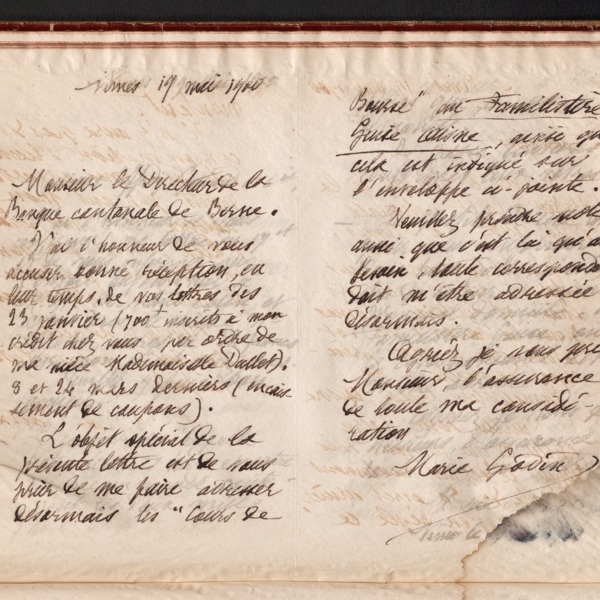 Nîmes 19 mai 1900
Monsieur le Directeur de la
Banque cantonale de Berne.
J'ai l'honneur de vous
accuser bonne réception, en
leur temps, de vos lettres des
23 janvier (700f inscrits à mon
crédit chez vous par ordre de
ma nièce Mademoiselle Dallet).
8 et 24 mars derniers (encais
sement de coupons).
L'objet spécial de la
présente lettre est de vous
prier de me faire adresser
désormais les "Cours de
Bourse" au Familistère
Guise Aisne, ainsi qu
cela est indiqué sur
l'enveloppe ci-jointe.
Veuillez prendre note
aussi que c'est là qu'a
besoin, toute correspond
doit m'être adressée
désormais.
Agréez je vous pri
Monsieur, l'assurance
de toute ma considé
ration
Marie Godin